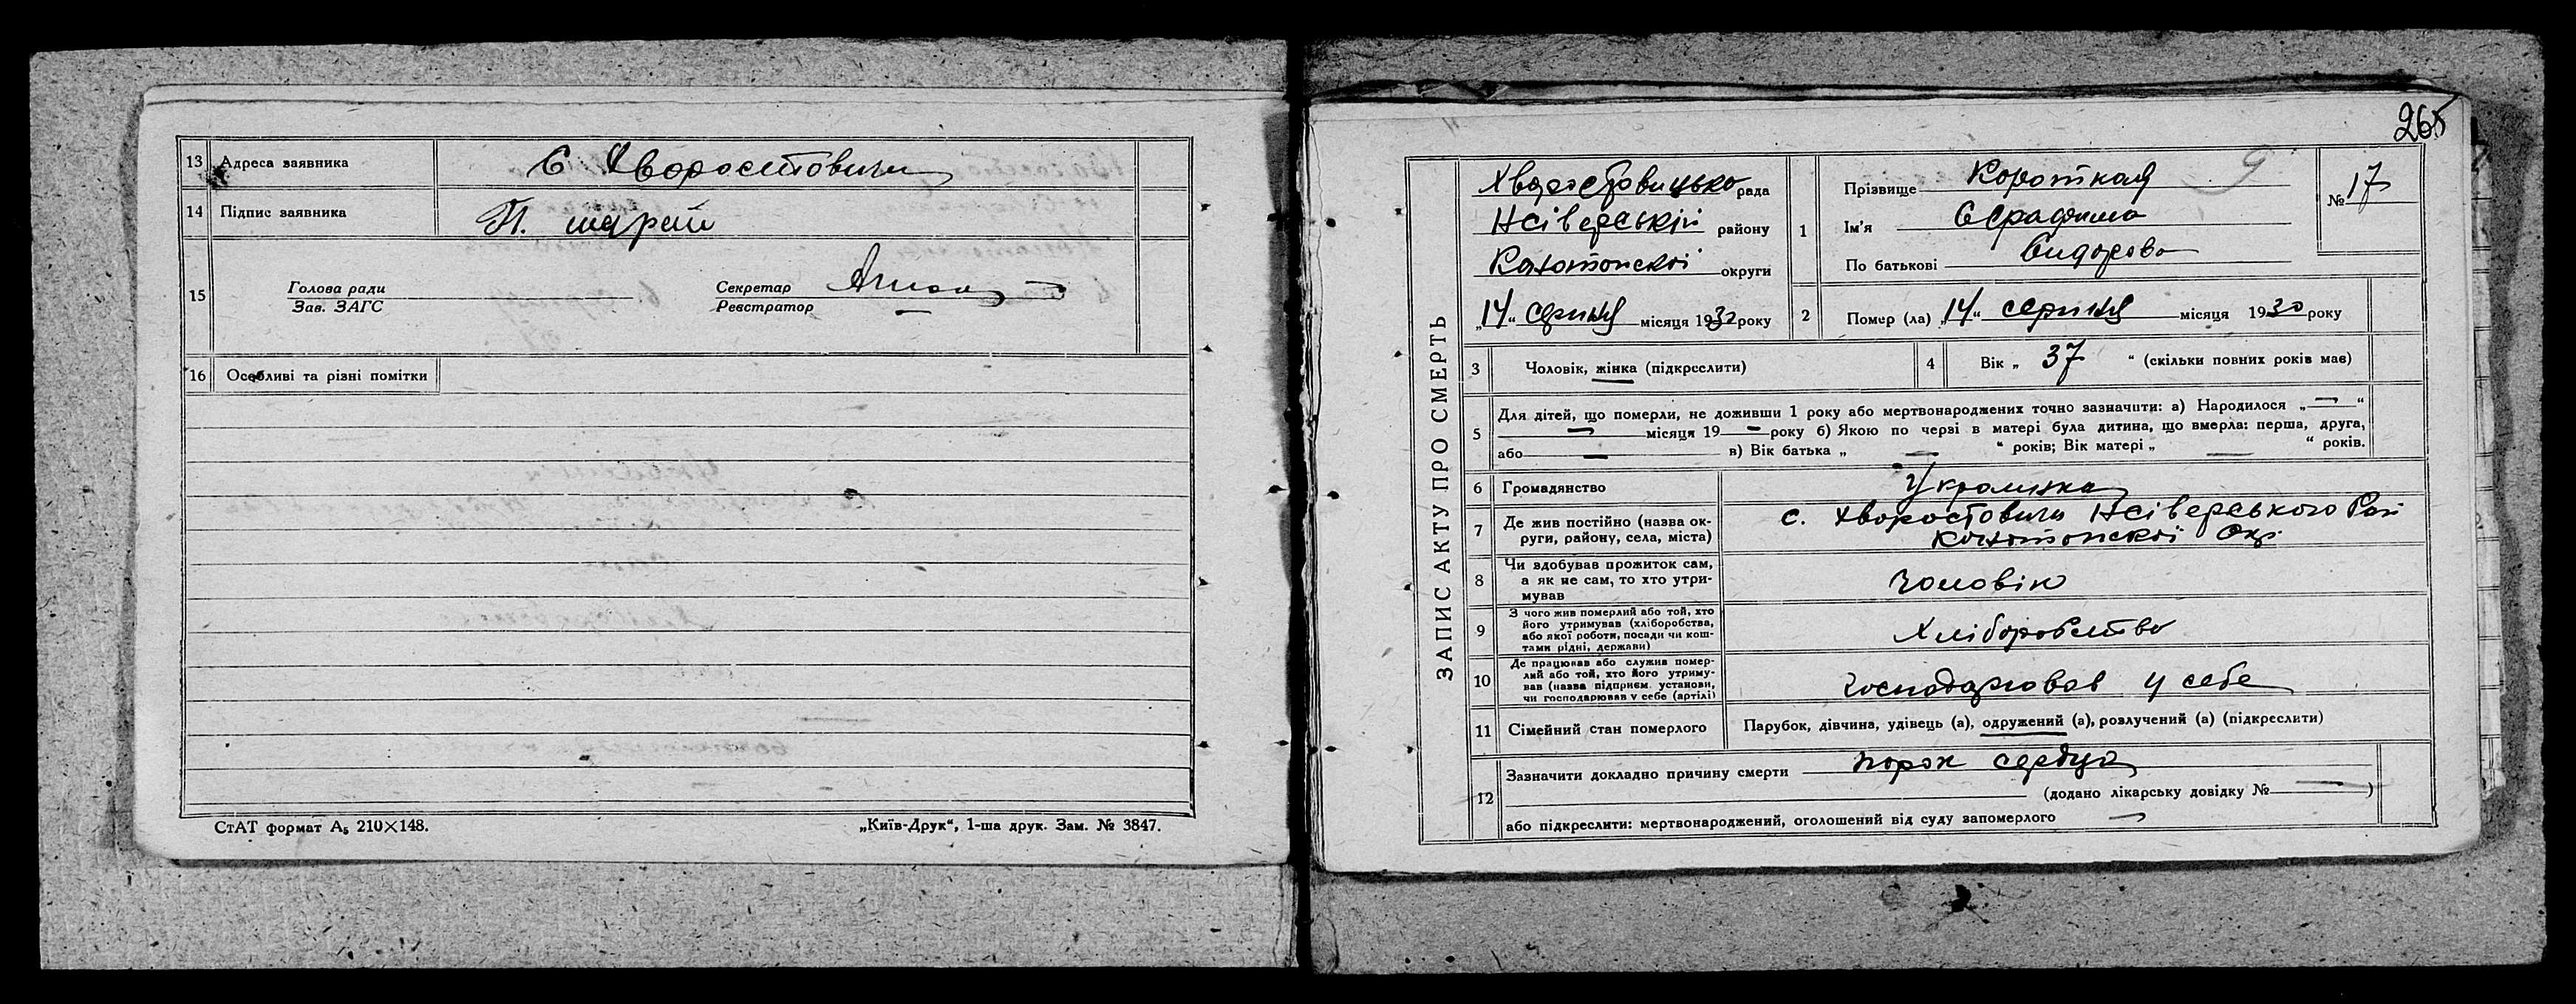 13 Адреса заявника С Хворостовичи
14 Підпис заявника П. шарай
15 Голова ради
Зав. ЗАГС
Секретар
Реєстратор
16 Особливі та різні помітки
СтАТ формат А5 210×148.
„Київ-Друк“, 1-ша друк. Зам. № 3847.
265
ЗАПИС АКТУ ПРО СМЕРТЬ
Хворостовицько рада
Нсіверський району
Конотопскої округи
„14“ серпня місяця 1930 року
1 Прізвище Короткая
Ім'я
По батькові Сидорова
№ 17
2 Помер (ла) „14“ серпня місяця 1930 року
3 Чоловік, жінка (підкреслити)
4 Вік „ 37 “ (скільки повних років мав)
5 Для дітей, що померли, не доживши 1 року або мертвонароджених точно зазначити: а) Народилося „—“
— місяця 19 — року б) Якою по черзі в матері була дитина, що вмерла: перша, друга,
або — в) Вік батька „ — “ років; Вік матері „ — “ років.
6 Громадянство Украинка
7 Де жив постійно (назва округи, району, села, міста) с. Хворостовичи Нсіверського Рай
Конотопскої Окр.
8 Чи здобував прожиток сам,
а як не сам, то хто утримував
чоловік
9 З чого жив померлий або той, хто
його утримував (хліборобства,
або якої роботи, посади чи коштами рідні, держави)
Хліборобство
10 Де працював або служив померлий або той, хто його утримував (назва підприєм. установи,
чи господарював у себе (артілі)
господарював у себе
11 Сімейний стан померлого Парубок, дівчина, удівець (а), одружений (а), розлучений (а) (підкреслити)
12 Зазначити докладно причину смерти порок сердца
(додано лікарську довідку № — )
або підкреслити: мертвонароджений, оголошений від суду запомерлого —